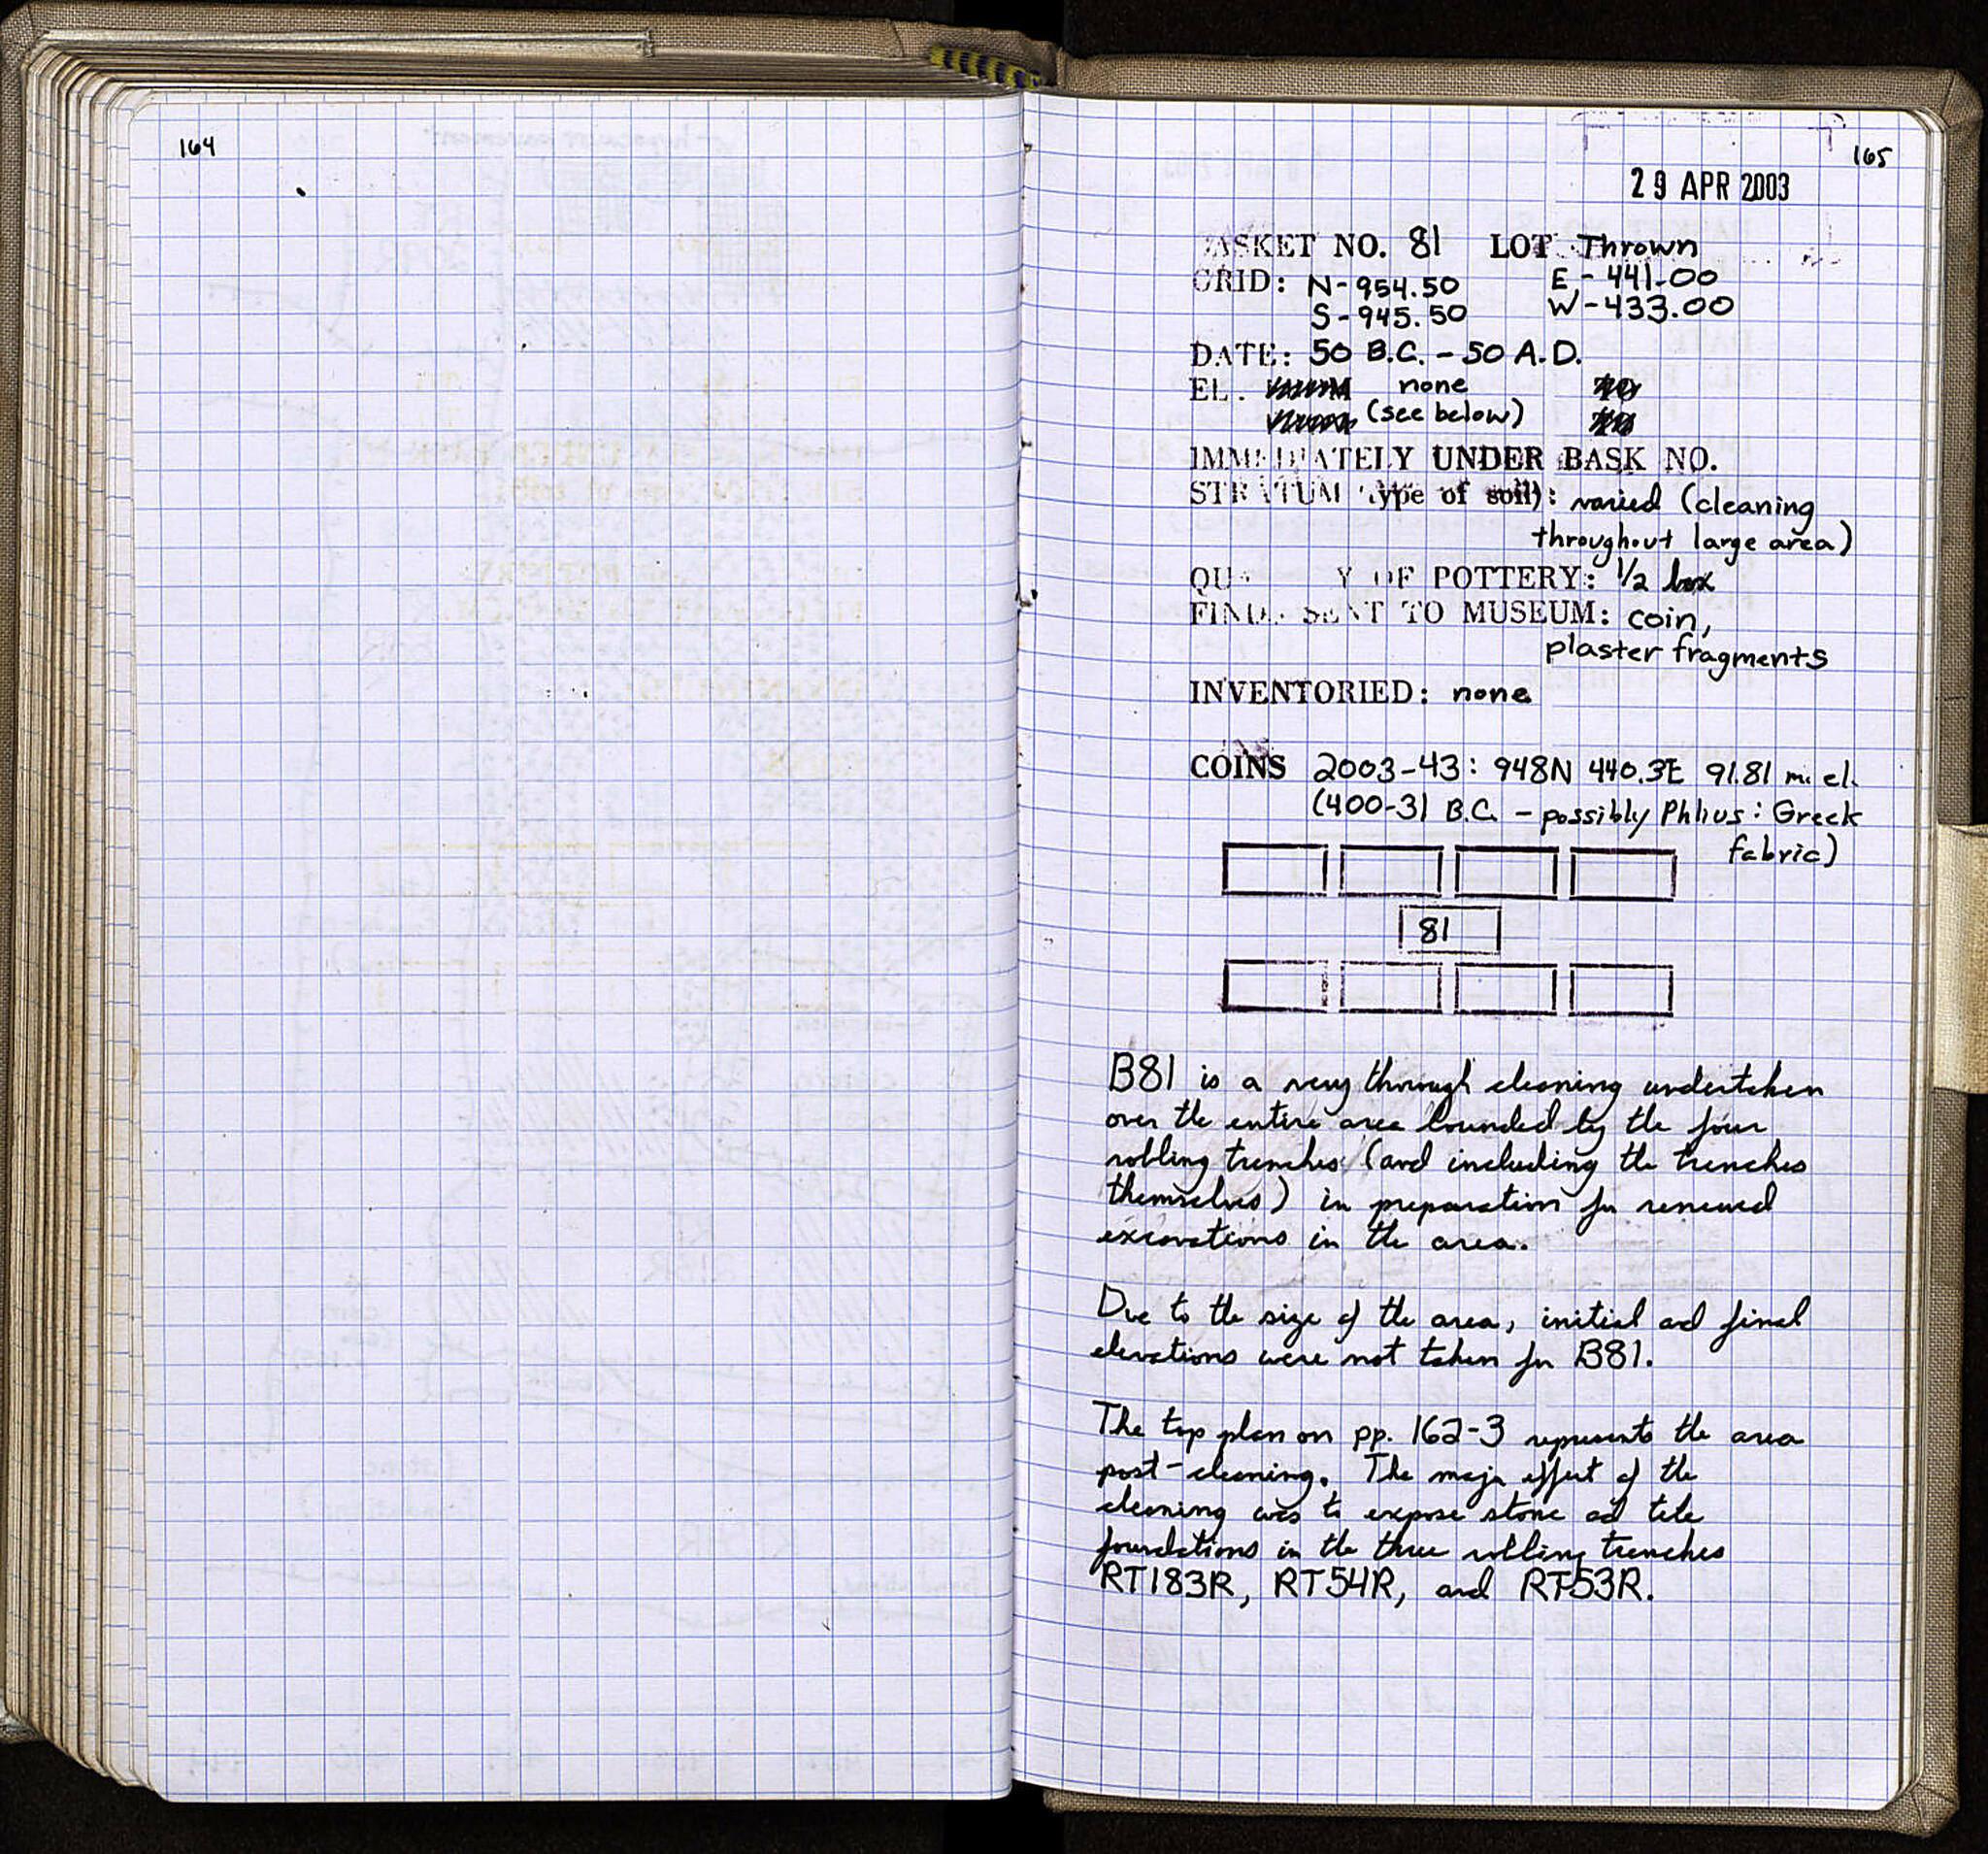 164
165
29 APR 2003
BASKET NO. 81 LOT Thrown
GRID: N-954.50 E-441.00
S-945.50 W-433.00
DATE: 50 B.C. - 50 A.D.
EL. none
(see below)
IMMEDIATELY UNDER BASK NO.
STRATUM (type of soil): varied (cleaning
throughout large area)
QUANTITY OF POTTERY: 1/2 box
FINDS SENT TO MUSEUM: coin,
plaster fragments
INVENTORIED: none
COINS 2003-43: 948N 440.3E 91.81 m. el.
(400-31 B.C. - possibly Phlius: Greek
fabric)
81
B81 is a very through cleaning undertaken
over the entire area bounded by the four
robbing trenches (and including the trenches
themselves) in preparation for renewed
excavations in the area.
Due to the size of the area, initial and final
elevations were not taken for B81.
The top plan on pp. 162-3 represents the area
post-cleaning. The major effect of the
cleaning was to expose stone and tile
foundations in the three robbing trenches
RT183R, RT54R, and RT53R.